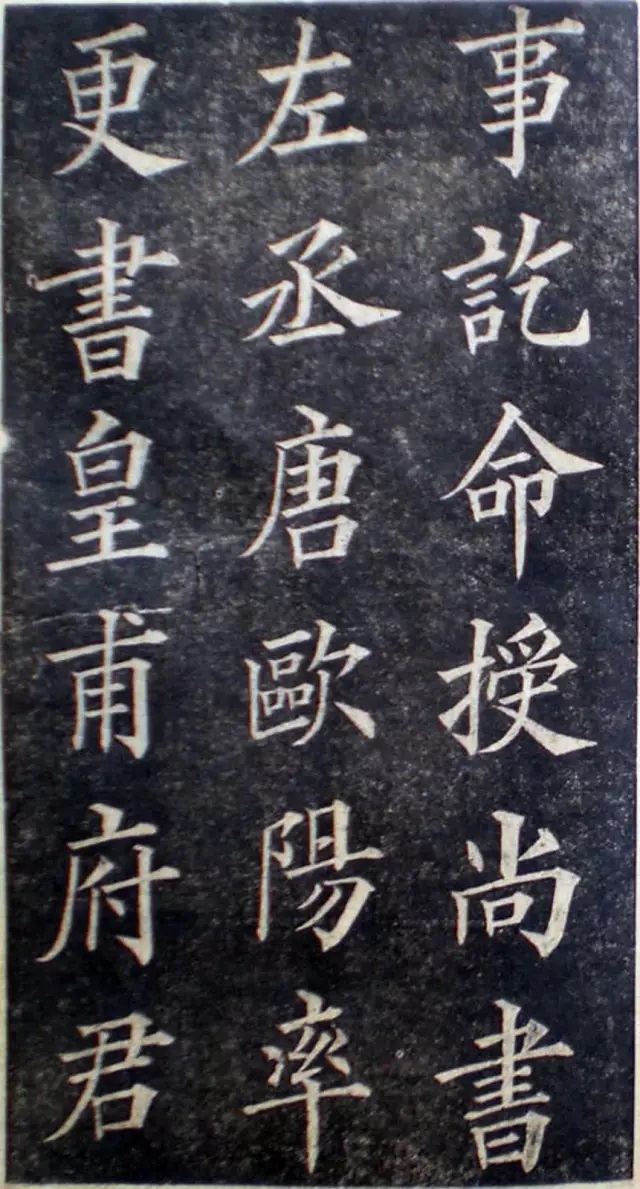 事訖命授尚書
左丞唐歐陽率
更書皇甫府君